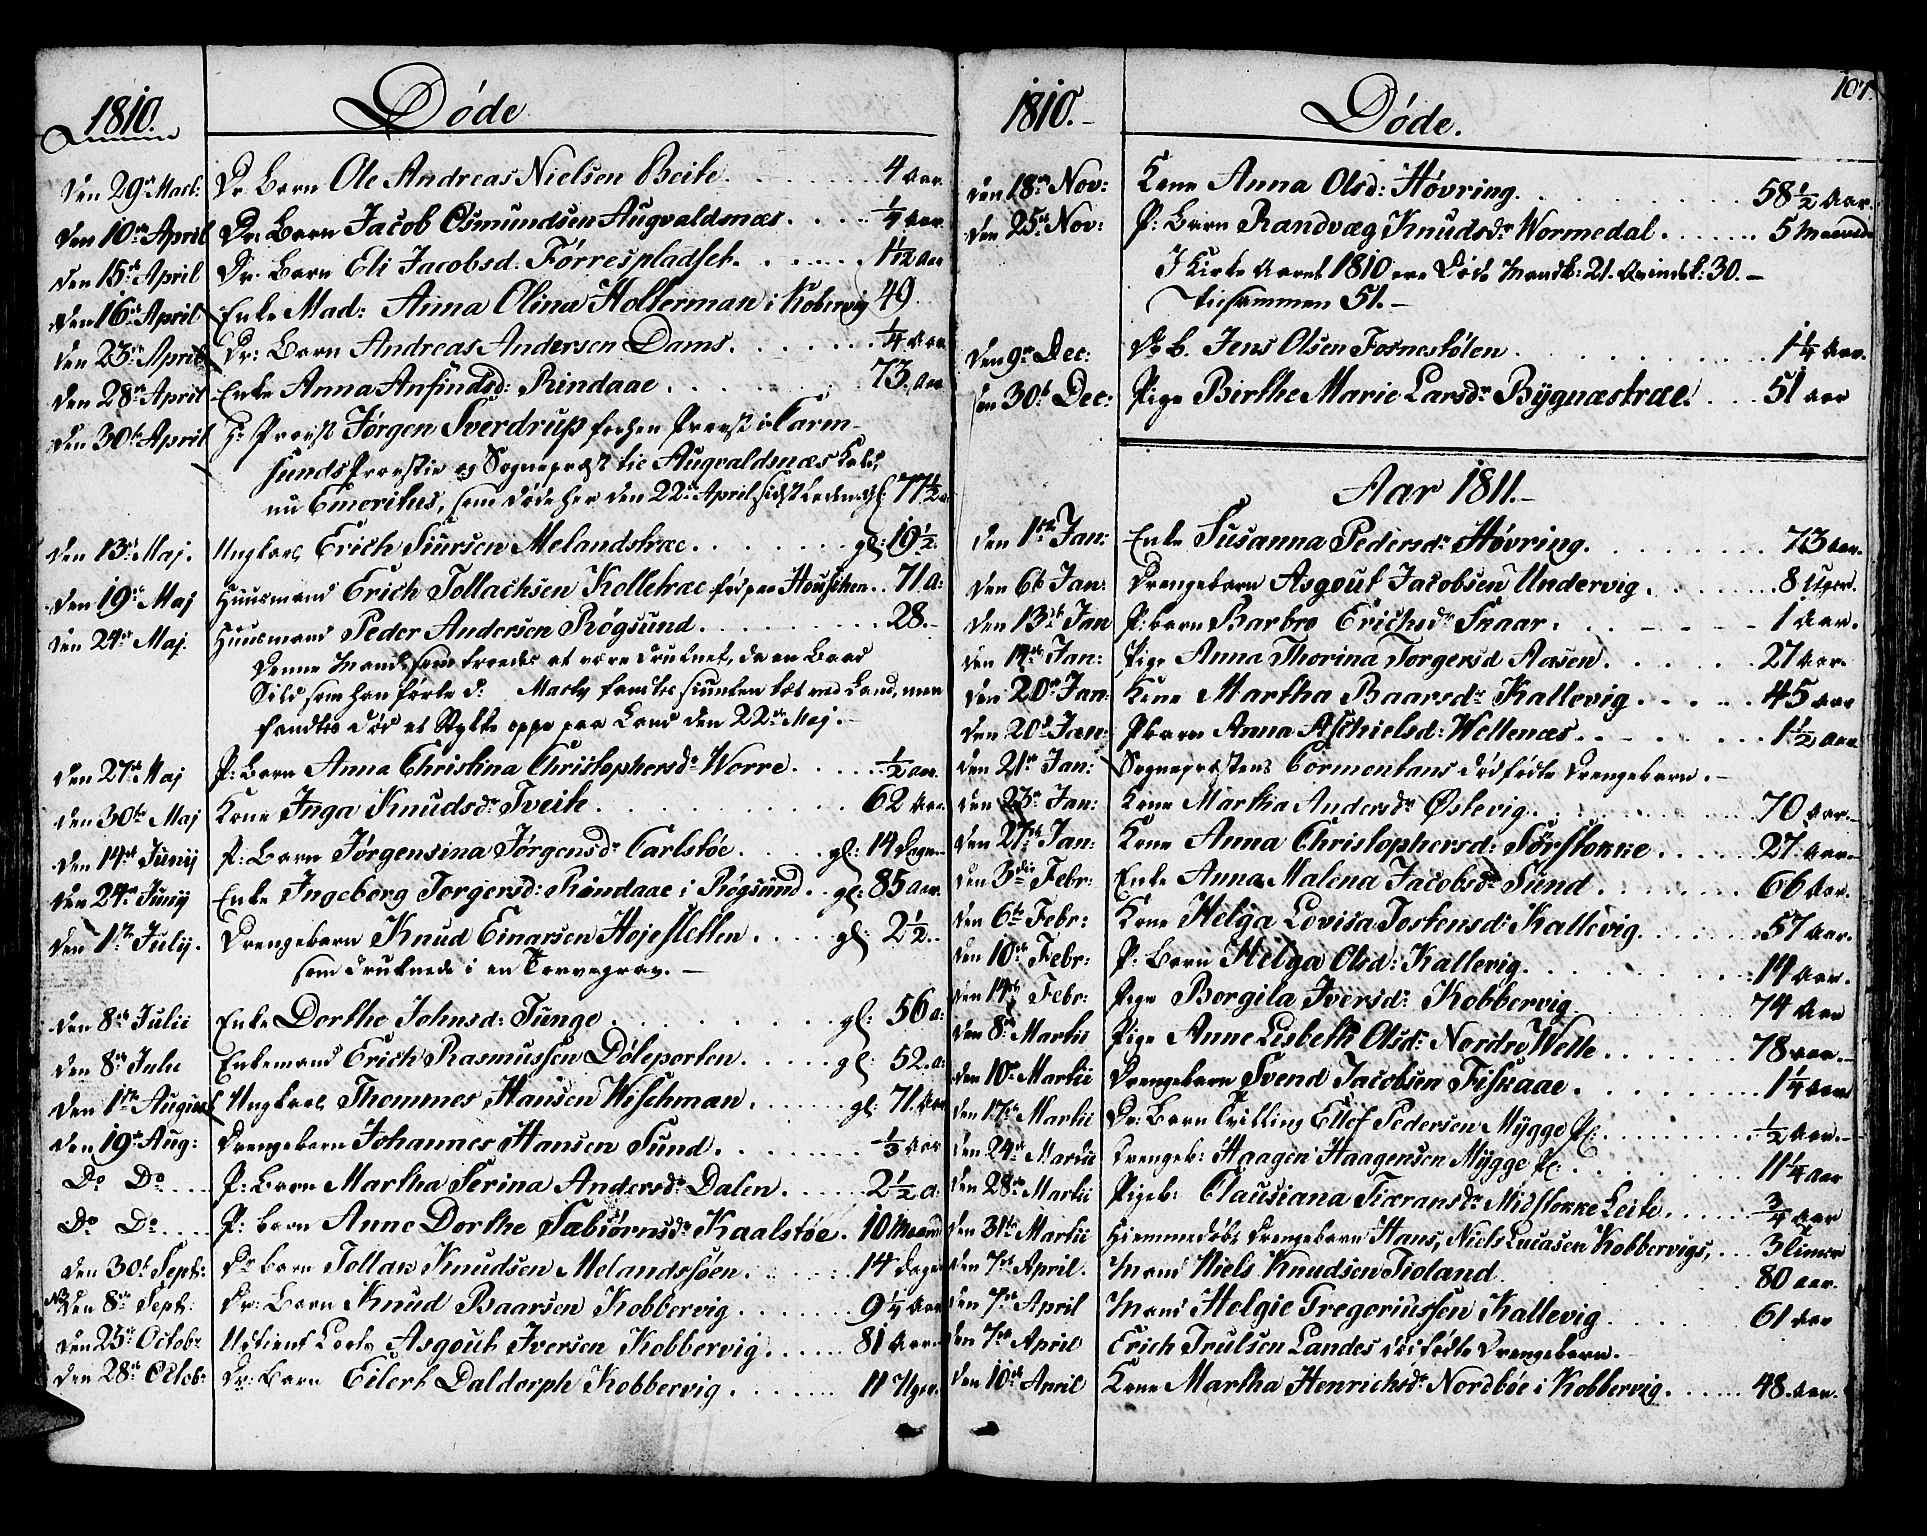 1810.
Døde
Den 29de Mart: Dr. Barn Ole Andreas Nielsen Beite. 4 Aar.
Den 10de April Dr: Barn Jacob Osmundsen Augvaldsnæs. 1/4 Aar
Den 15de April Dr. Barn Eli Jacobsd: Førrespladset. 1 1/12 Aar
Den 16de April Enke Mad: Anna Olina Holterman i Kobervig 49.
Den 23de April Dr: Barn Andreas Andersen Dams. 1/4 Aar
Den 28de April Enke Anna Anfindsd: Rindaae. 73. Aar
Den 30te April Hr Provst Jørgen Sverdrup forhen Provst i Carm-
sunds Provstie og Sognepræst til Augvaldsnæs Kald,
nu Emeritus, som døde her den 22de April sidst leden. gl: 77 1/2 a
Den 13de Maj. Ungkarl Erich Siursen Melandstræe. gl: 19 1/2.
Den 19de Maj Huusmand Erich Tollachsen Kolletræe føt paa Houschen. 71. a:
Den 24de Maj. Huusmand Peder Andersen Røgsund. 28.
Denne Mand, som troedes at være druknet, da en Baad
Sild som han førte d: Marty fandtes siunken tæt ved Land, men
fandtes død et Stykke oppe paa Land den 22de Maj.
Den 27de Maj P: Barn Anna Christina Christophersdr Worre. 1/2 Aar.
Den 30te Maj Kone Inga Knudsdr Tveite. 62 Aar
Den 14de Junij P: Barn Jørgensina Jørgensdr Carlstøe. gl: 14 Dage
Den 24de Junij Enke Ingeborg Torgersd: Rindaae i Røgsund. gl: 85 Aar.
Den 1ste Julij. Drengebarn Knud Einarsen Højesletten. gl: 2 1/2.
som druknede i en Torvegrav.
Den 8de Julii Enke Dorthe Johnsd: Tunge. gl: 56 a:
Den 8de Julii Enkemand Erich Rasmussen Døleporten. gl: 52. a:
Den 1ste August Ungkarl Thommes Hansen Wischman. gl: 71. Aar
Den 19de Aug: Drengebarn Johannes Hansen Sund. 1/3 Aar
Do Do P: Barn Martha Serina Andersdr Dalen. 2 1/2 a.
Do Do P: barn Anne Dorthe Sæbiørnsdr Kaalstøe. 10 Maaned
Den 30te Sept: Dr barn Tollak Knudsen Melandssøen. 14 Dage
NB Den 8de Sept: Dr: Barn Knud Baarsen Kobbervig. 9 1/4 Aar
Den 23de Octobr Udtient Lods Asgout Iversen Kobbervig. 81 Aar
Den 28de Octob: Dr: Barn Eilert Daldorph Kobbervig. 11 Uger
1810.
Døde.
107.
Den 18de Nov: Kone Anna Olsd: Høvring. 58 1/2 Aar.
Den 25de Nov: P: Barn Randvæg Knudsdr Wormedal. 5 Maaneder
I Kirke Aaret 1810 ere Døde Mandk: 21. Qvindek: 30.
Tilsammen 51.
Den 9de Dec: Dr b. Jens Olsen Fosnestølen. 1 1/4 Aar.
Den 30te Dec: Pige Birthe Marie Larsdr Bygnæstræe. 51 Aar
Aar 1811.
Den 1ste Jan: Enke Susanna Pedersdr Høvring. 73 Aar.
Den 6te Jan: Drengebarn Asgout Jacobsen Undervig. 8 Uger.
Den 13de Jan P: barn Barbro Erichsdr Skaar. 1 Aar.
Den 14de Jan: Pige Anna Thorina Torgersd Aasen. 27 Aar.
Den 20de Jan: Kone Martha Baarsdr Kallevig. 45 Aar
Den 20de Jan: P barn Anna Aschielsd: Wellenæs. 1 1/2 Aar
Den 21de Jan: Sognepræstens Cormontans dødfødte Drengebarn.
Den 23de Jan: Kone Martha Andersdr Østevig. 70 Aar.
Den 27de Jan: Kone Anna Christophersd: Sørstokke. 27 Aar.
Den 3die Febr: Enke Anna Malena Jacobsdr Sund. 66 Aar.
Den 6te Febr: Kone Helga Lovisa Tostensd: Kallevig. 57 Aar.
Den 10de Febr: P: Barn Helga Olsd: Kallevig. 14 Aar.
Den 14de Febr: Pige Borgila Iversd: Kobbervig 74 Aar
Den 8de Martii Pige Anne Lisbeth Olsdr Nordre Welle. 78 Aar.
Den 10de Martii Drengebarn Svend Jacobsen Fiskaae. 1 1/4 Aar
Den 17de Martii Dr: Barn Tvilling Ellef Pedersen Mygge Pl: 1/2 Aar.
Den 24de Martii Drengeb: Haagen Haagensen Mygge Pl: 11 1/4 Aar
Den 28de Martii Pigeb: Clausiana Tiæransdr Midstokke Leite. 3/4 Aar
Den 31te Martii Hiemmedøbt Drengebarn Hans, Niels Lucasen Kobbervigs, 3 Timer
Den 7de April. Mand Niels Knudsen Tioland. 80 Aar.
Den 7de April Mand Helgie Gregoriussen Kallevig. 61 Aar
Den 7de April Erich Trulsen Landes dødfødte Drengebarn.
Den 10de April Kone Martha Henrichsdr Nordbøe i Kobbervig. 48 Aar.